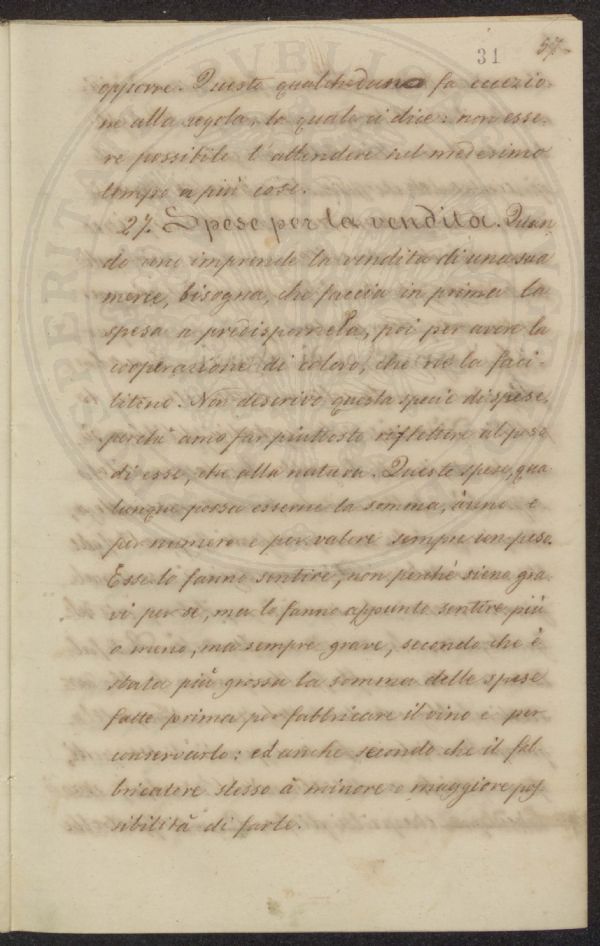 31 57
opporre. Questo qualcheduno fa eccezio-
ne alla regola, la quale ci dice: non esse-
re possibile l'attendere nel medesimo
tempo a più cose.
27. Spese per la vendita. Quan
do uno imprende la vendita di una sua
merce, bisogna, che faccia in prima la
spesa a predisporvela, poi per avere la
cooperazione di coloro, che ne la faci-
litino. Non descrivo questa specie di spese,
perchè amo far piuttosto riflettere al peso
di esse, che alla natura. Queste spese, qua
lunque possa esserne la somma, ànno e
per numero e per valore sempre un peso.
Esse lo fanno sentire, non perchè sieno gra-
vi per se, ma lo fanno appunto sentire più
o meno, ma sempre grave, secondo che è
stata più grossa la somma delle spese
fatte prima per fabbricare il vino e per
conservarlo: ed anche secondo che il fab-
bricatore stesso à minore o maggiore pos
sibilità di farle.